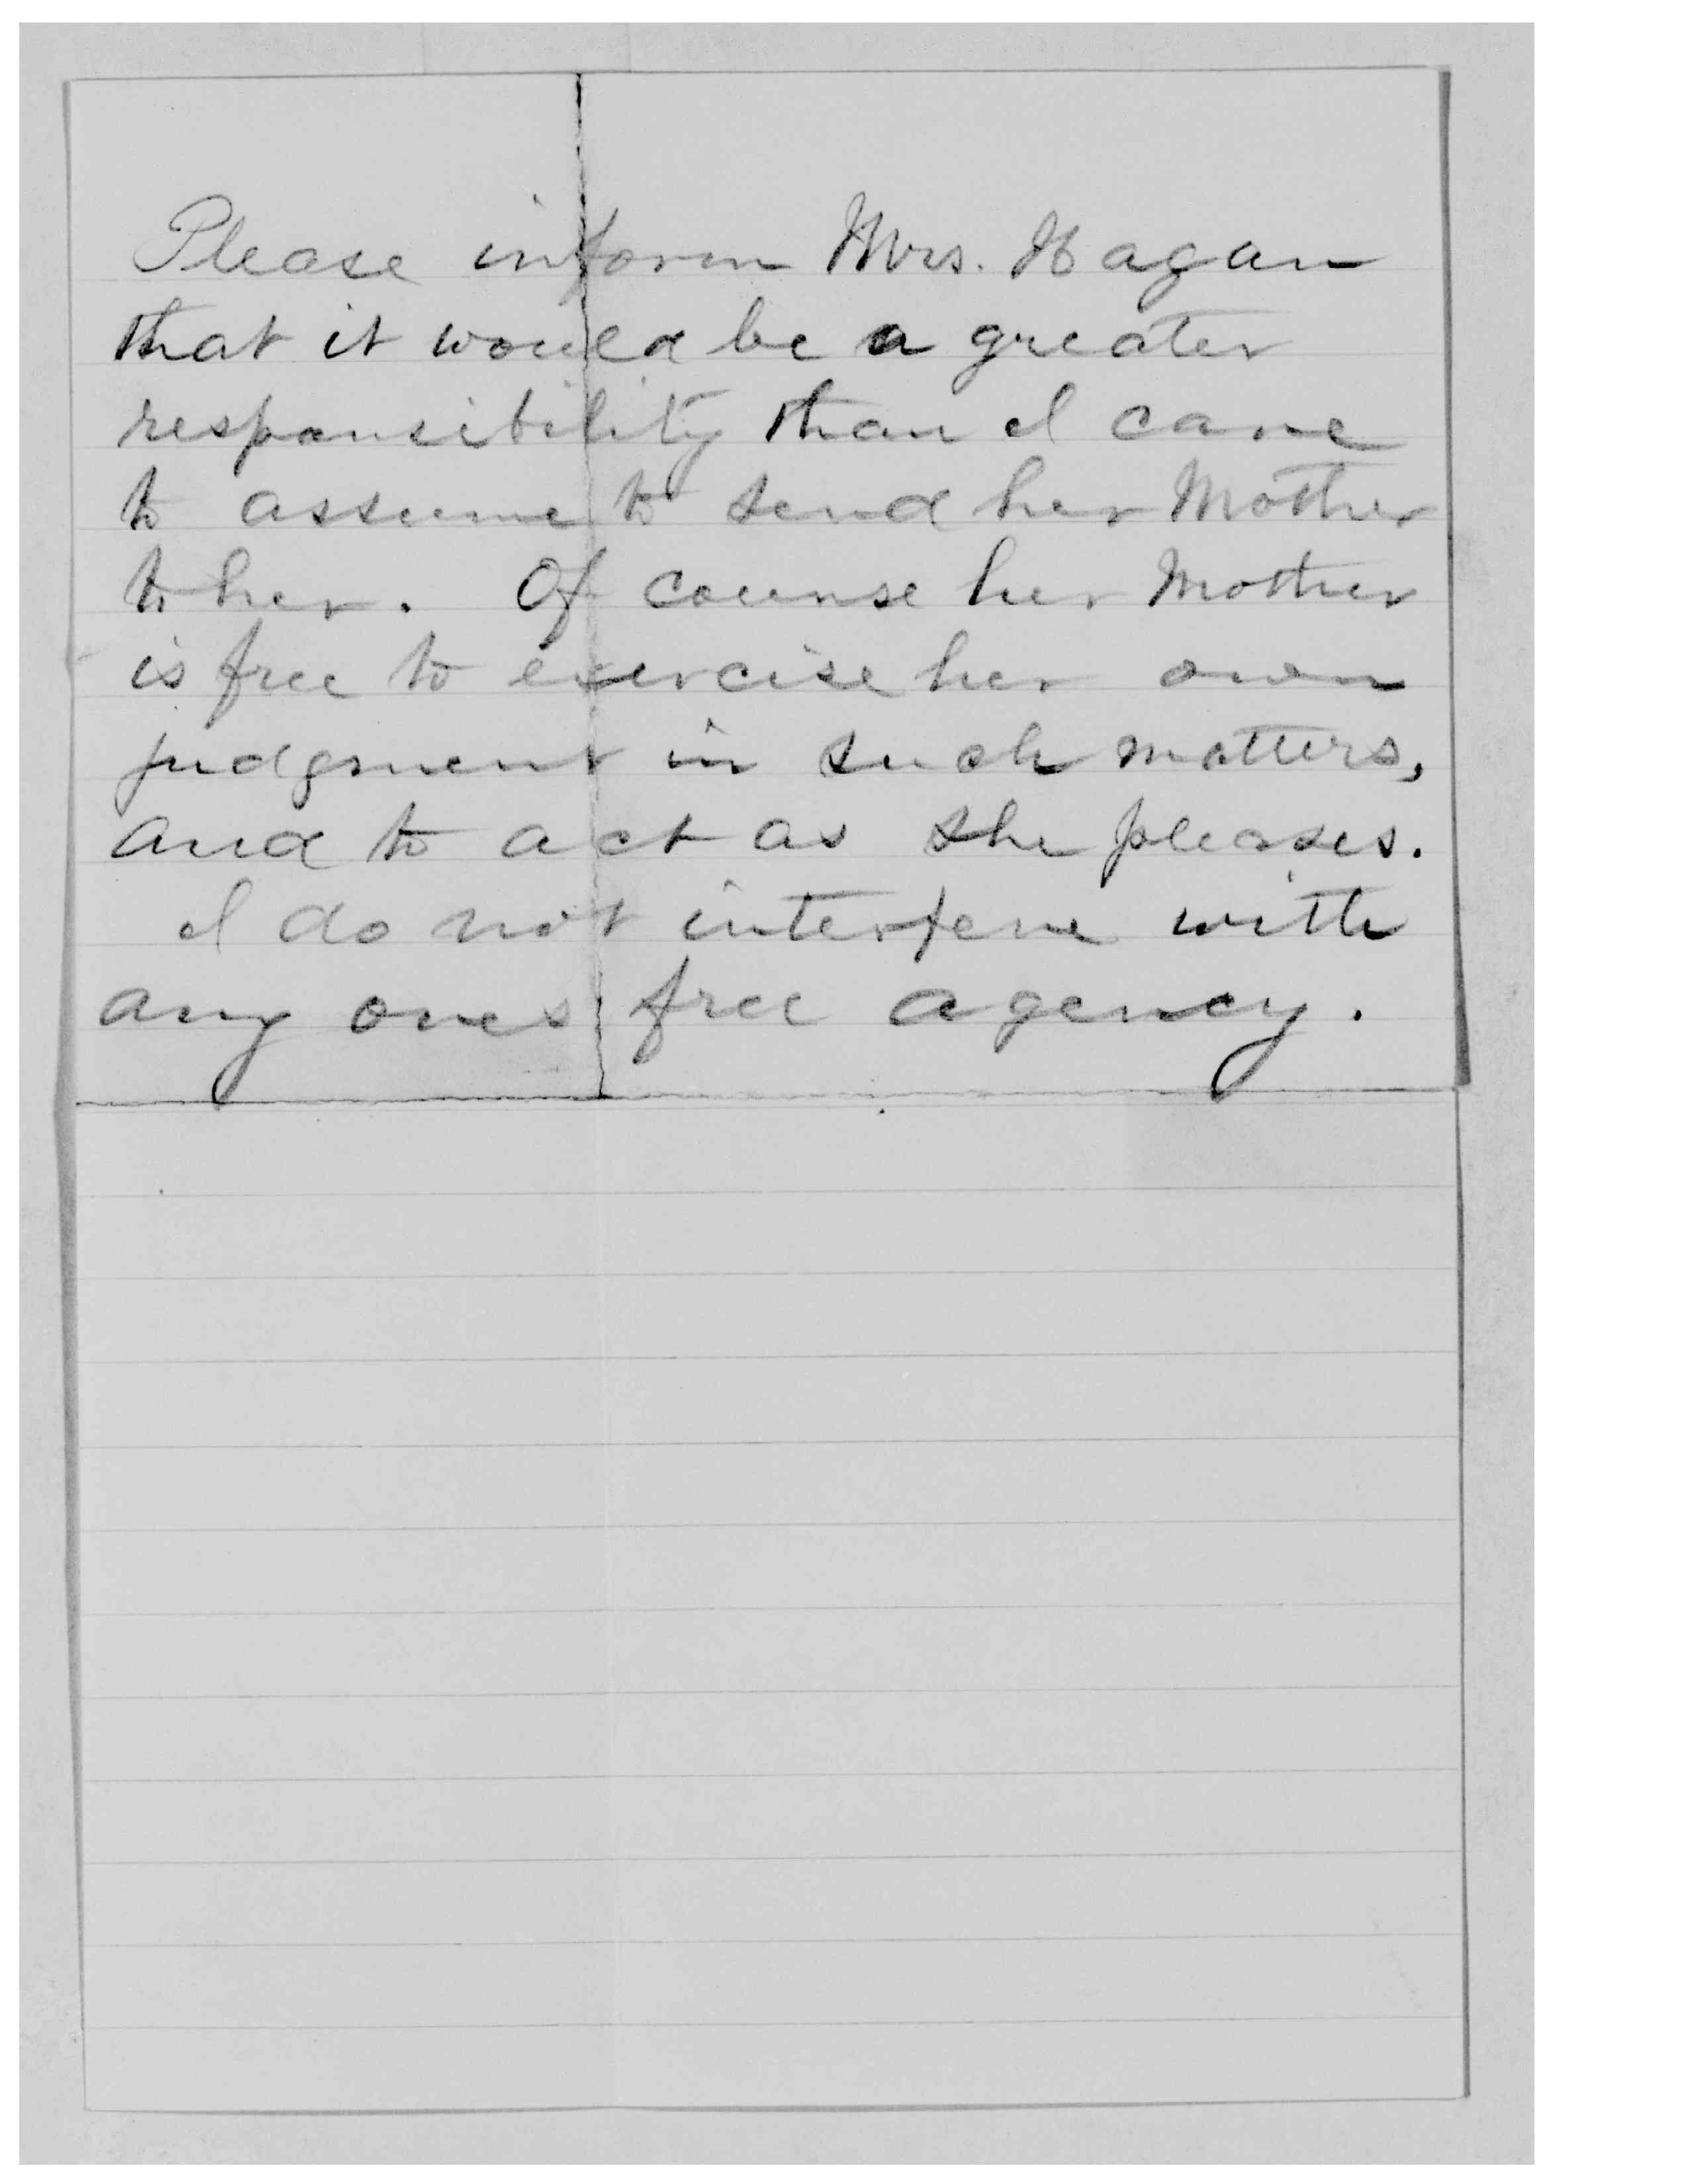 Please inform Mrs. Hagan
that it would be a greater
responsibility than I care
to assume to send her Mother
to her. Of course her Mother
is free to exercise her own
judgment in such matters,
and to act as she pleases.
I do not interfere with
any ones free agency.